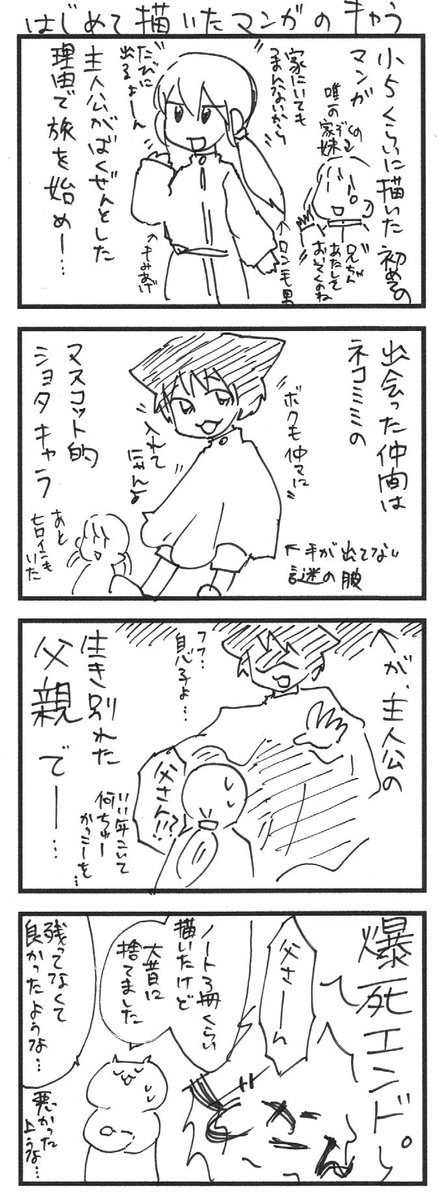 はじめて描いたマンガのキャラ
小5くらいに描いた初めての
マンガ
唯一の
家族の
妹
兄ちゃん
あたしを
おいてくのね
家にいても
つまんないから
たびに
出るよーん
↑ロン毛男
↑もみあげ
主人公がばくぜんとした
理由で旅を始めー…
出会った仲間は
ネコミミの
ボクも仲マに
入れて
にゃん♪
マスコット的
ショタキャラ
↑手が出てない
謎の服
あと
ヒロインも
いた
↑が、主人公の
フフ…
息子よ…
生き別れた
父親
でー…
父さん!!?
いい年こいて
何ちゅー
かっこーを…
爆死エンド。
父さーん
ノート3冊くらい
描いたけど
大昔に
捨てました
残ってなくて
良かったような…
悪かった
ような…